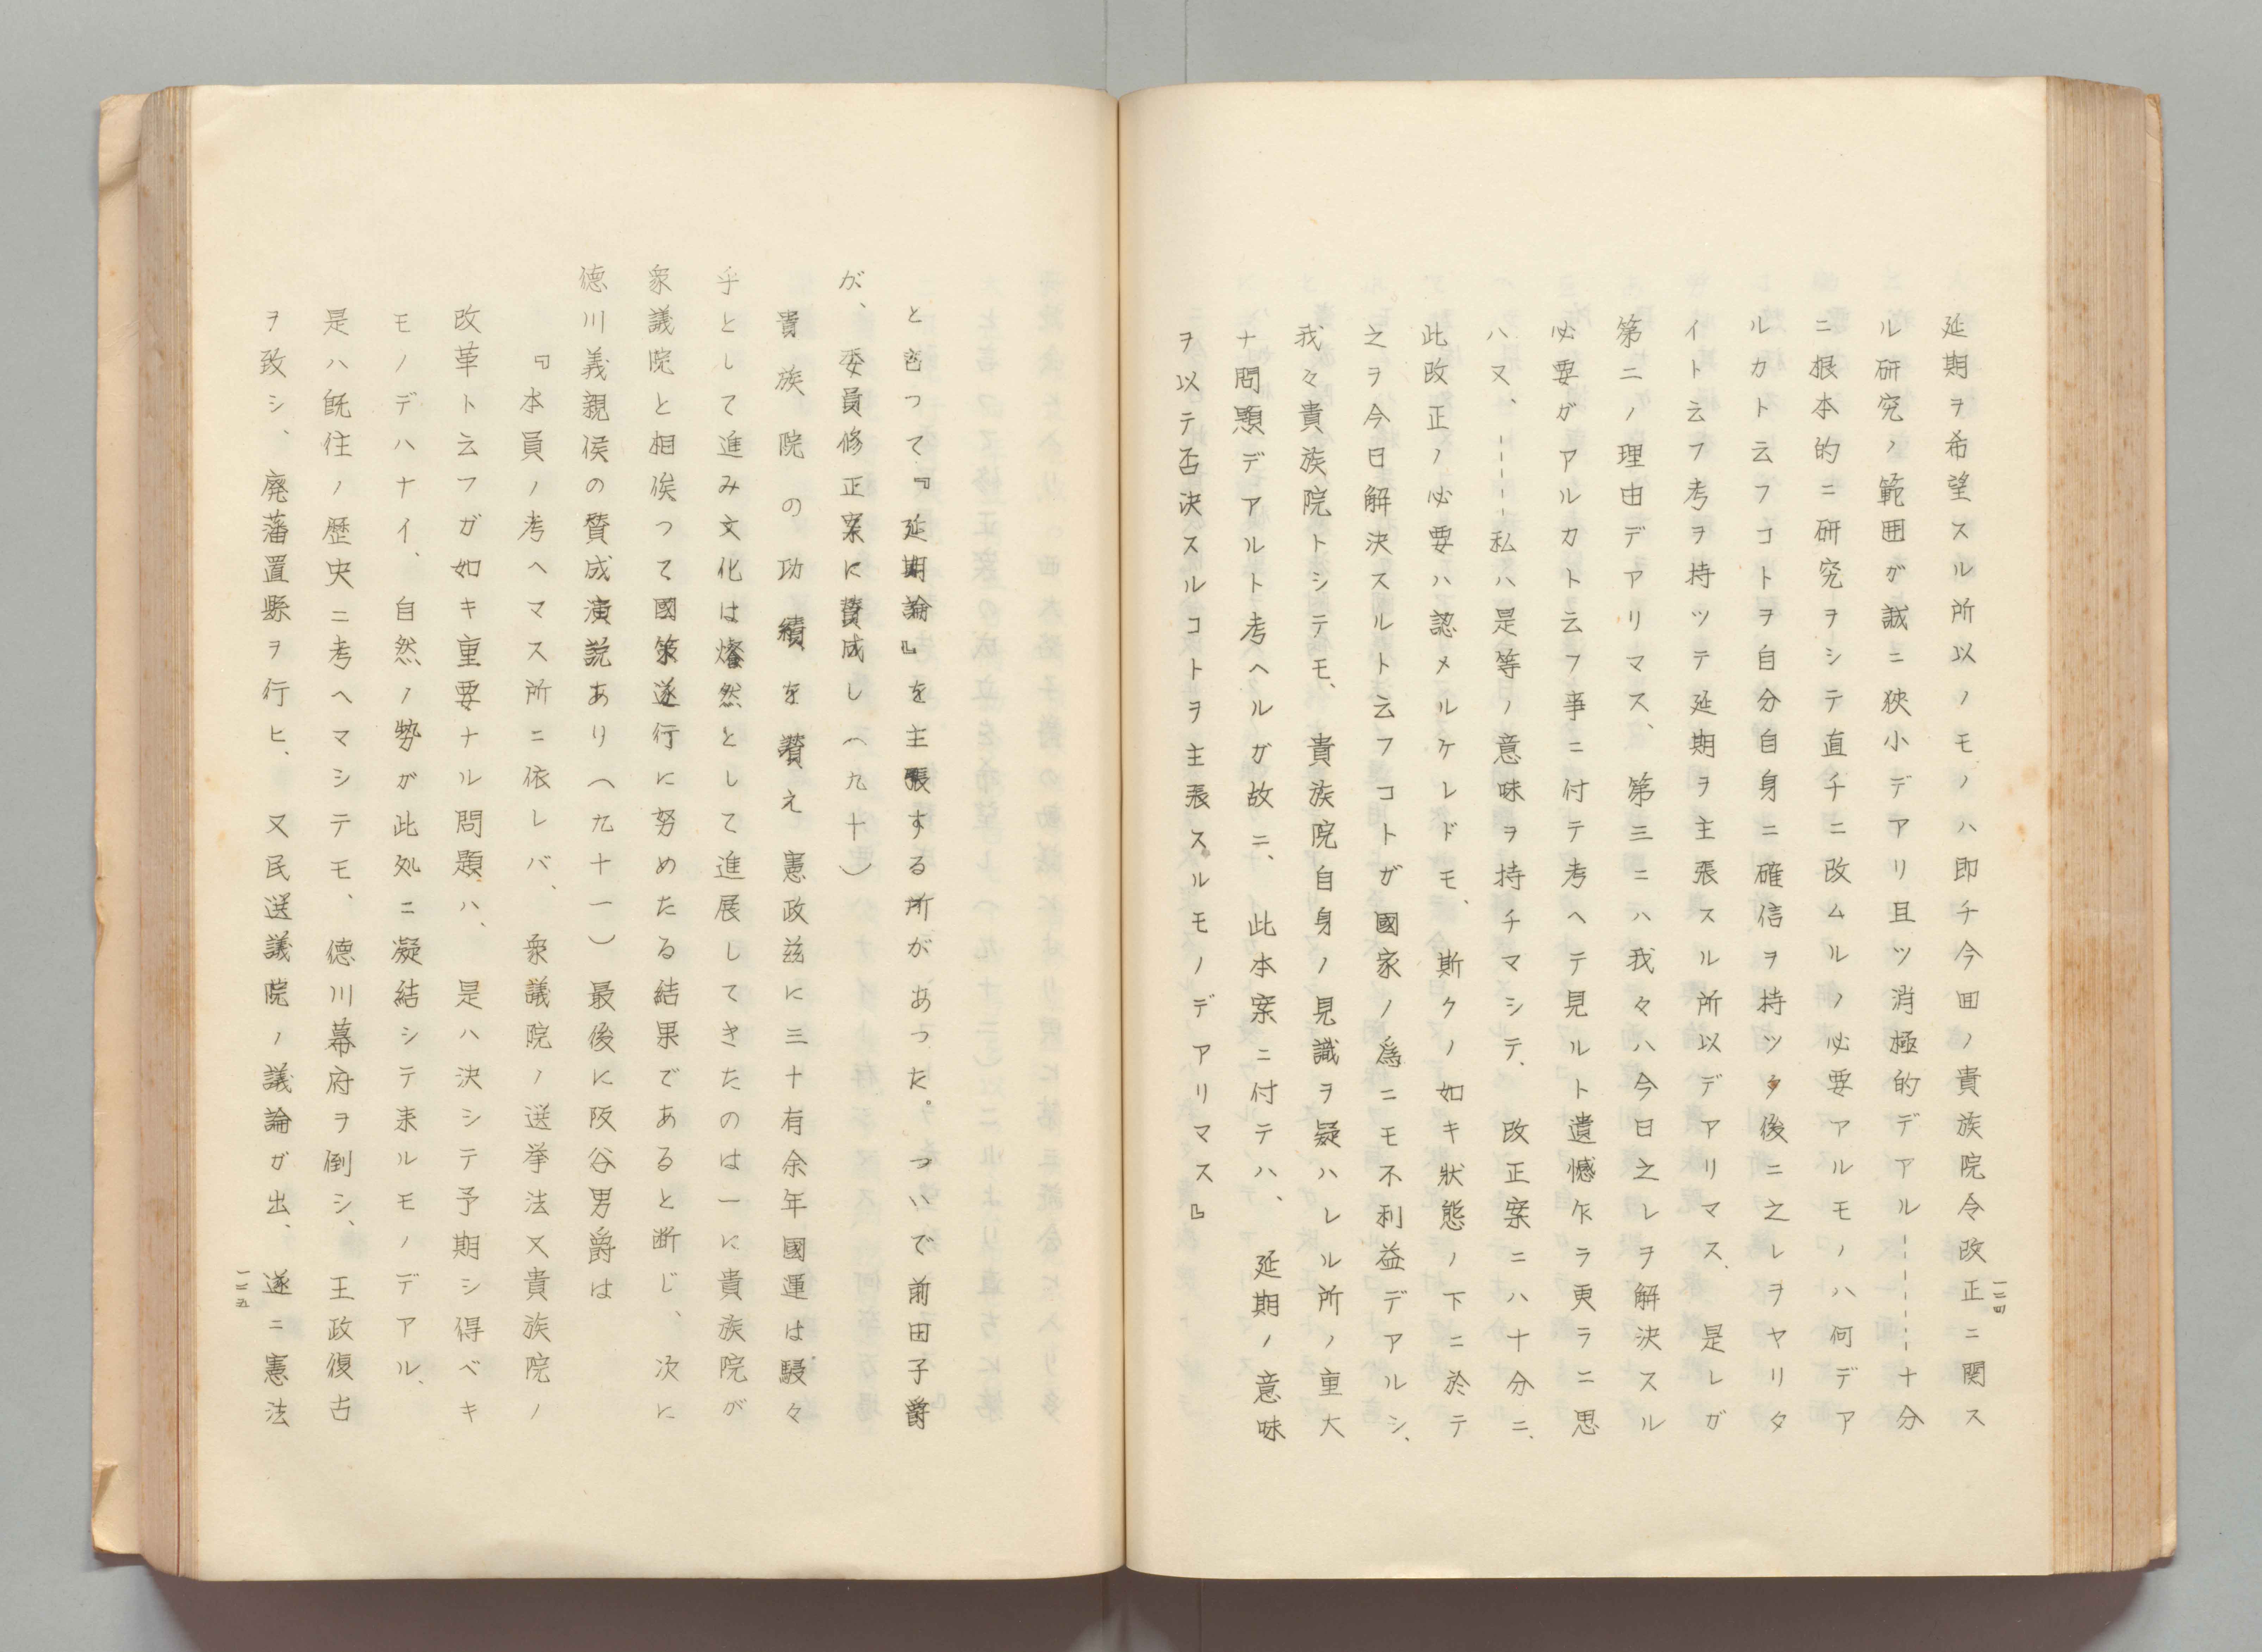 延期ヲ希望スル所以ノモノハ即チ今回ノ貴族院令改正ニ関ス
ル研究ノ範囲ガ誠ニ狹小デアリ且ツ消極的デアル------十分
ニ根本的ニ研究ヲシテ直チニ改ムルノ必要アルモノハ何デア
ルカト云フコトヲ自分自身ニ確信ヲ持ツタ後ニ之レヲヤリタ
イト云フ考ヲ持ツテ延期ヲ主張スル所以デアリマス、是レガ
第二ノ理由デアリマス、第三ニハ我々ハ今日之レヲ解決スル
必要ガアルカト云フ事ニ付テ考ヘテ見ルト遺憾乍ラ更ラニ思
ハヌ、----私ハ是等ノ意味ヲ持チマシテ、改正案ニハ十分ニ、
此改正ノ必要ハ認メルケレドモ、斯クノ如キ狀態ノ下ニ於テ
之ヲ今日解決スルト云フコトガ國家ノ爲ニモ不利益デアルシ、
我々貴族院トシテモ、貴族院自身ノ見識ヲ疑ハレル所ノ重大
ナ問題デアルト考ヘルガ故ニ、此本案ニ付テハ、延期ノ意味
ヲ以テ否決スルコトヲ主張スルモノデアリマス』
一二四
と言つて『延期論』を主張する所があつた。ついで前田子爵
が、委員修正案に賛成し(九十)
貴族院の功績を讃え憲政茲に三十有余年國運は駸々
乎として進み文化は燦然として進展してきたのは一に貴族院が
衆議院と相俟つて國策遂行に努めたる結果であると断じ、次に
徳川義親侯の賛成演説あり(九十一)最後に阪谷男爵は
『本員ノ考ヘマス所ニ依レバ、衆議院ノ選挙法又貴族院ノ
改革ト云フガ如キ重要ナル問題ハ、是ハ決シテ予期シ得ベキ
モノデハナイ、自然ノ勢ガ此処ニ凝結シテ来ルモノデアル、
是ハ既往ノ歴史ニ考ヘマシテモ、徳川幕府ヲ倒シ、王政復古
ヲ致シ、廃藩置縣ヲ行ヒ、又民選議院ノ議論ガ出、遂ニ憲法
一二五